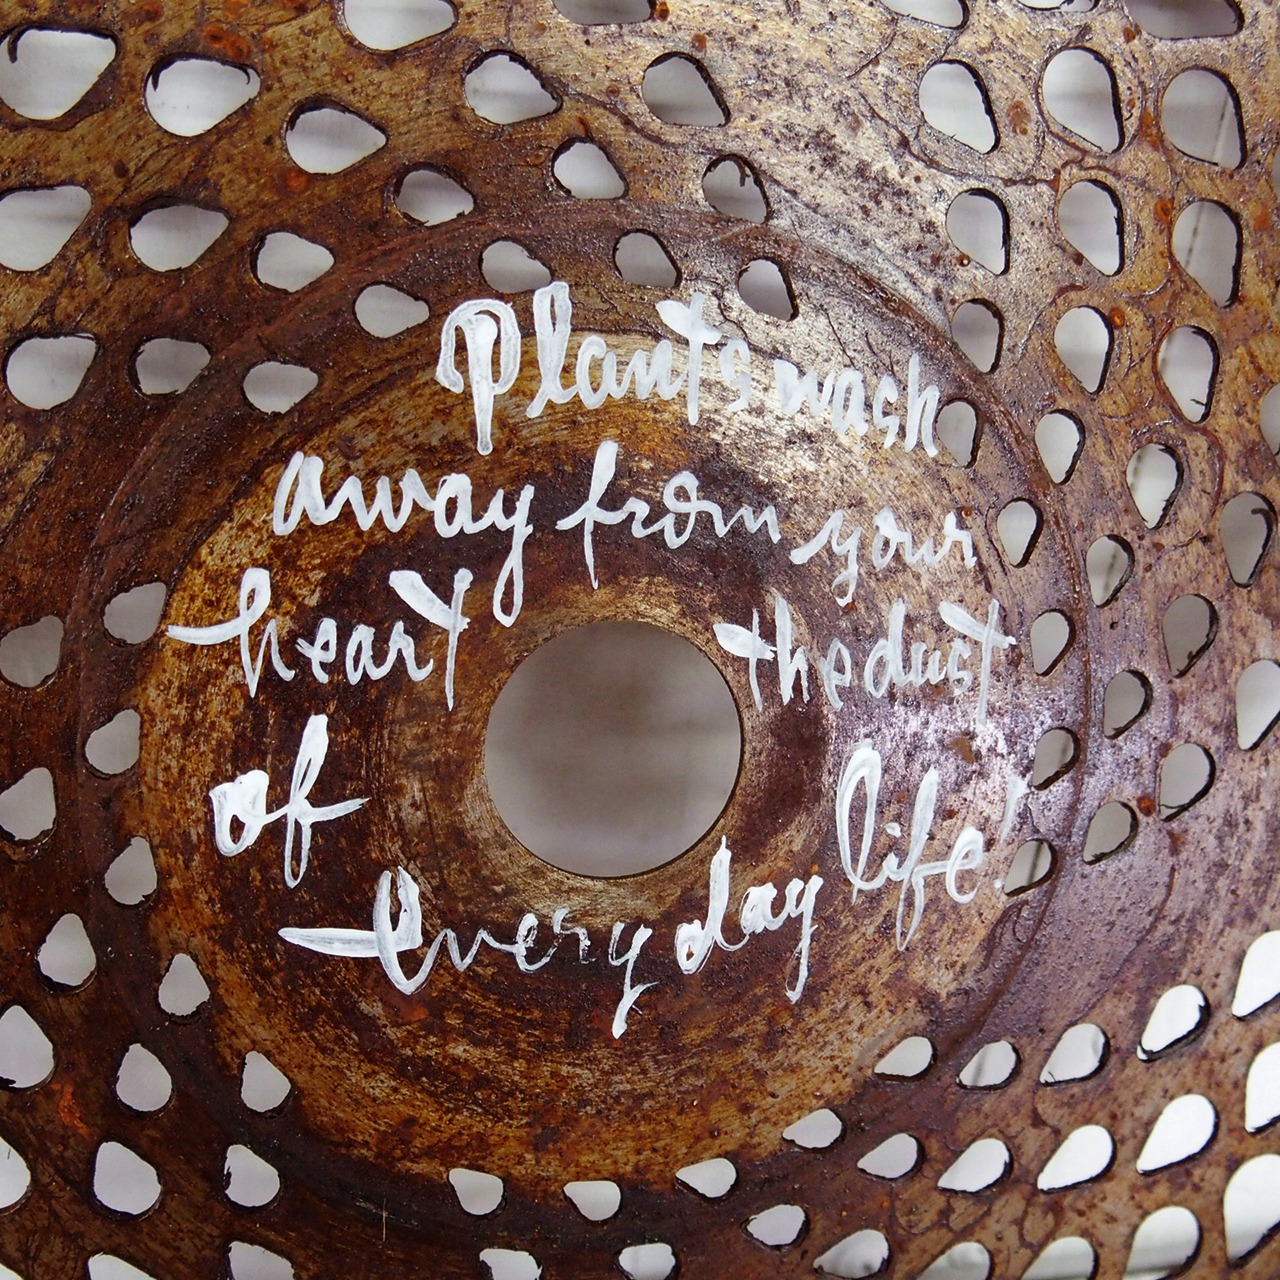 Plants wash
away from your
heart the dust
of
every day life!